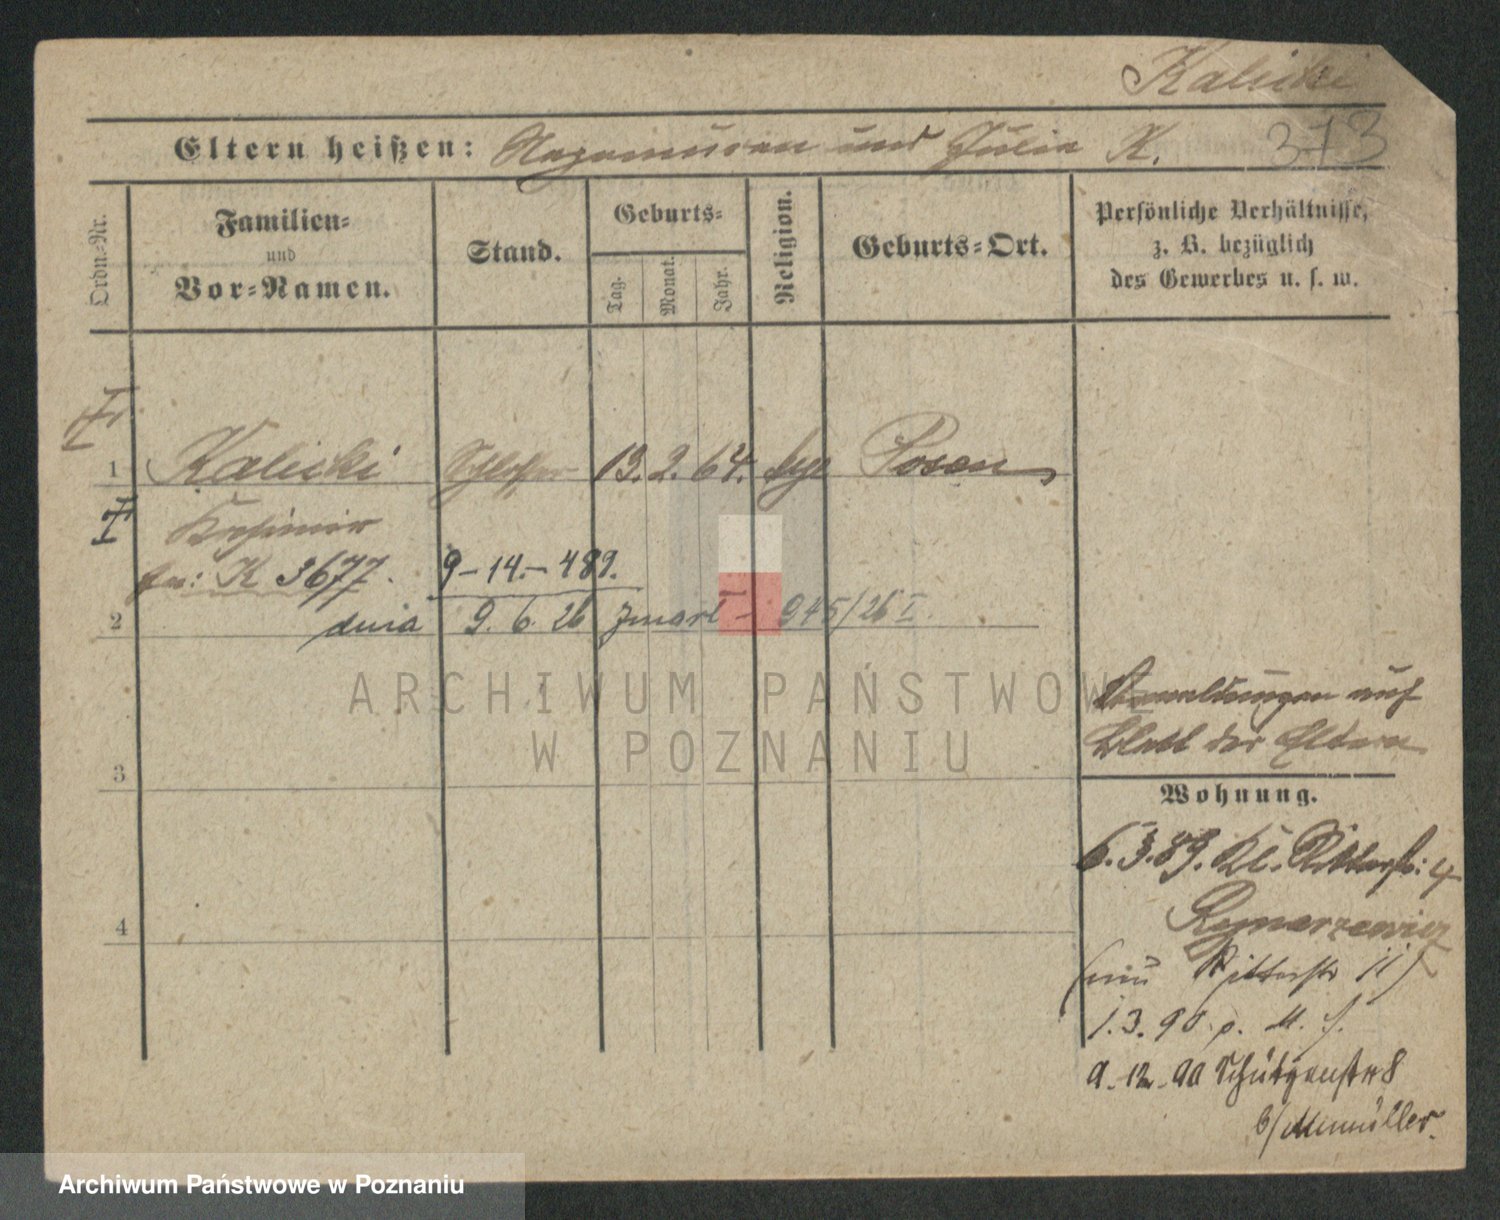 Kaliski
Eltern heißen: und Julia K. 373
Ordn.-Nr.
Familien-
und
Vor-Namen.
Stand.
Geburts-
Tag.
Monat.
Jahr.
Religion.
Geburts-Ort.
Persönliche Verhältnisse,
z. B. bezüglich
des Gewerbes u. s. w.
1 Kaliski Schlosser 13. 2. 64. Posen
Kasimir
K 3677. 9-14.-489.
2 dnia 9. 6. 26 zmarł - 945/26 I.
ARCHIWUM PAŃSTWOWE
W POZNANIU
auf
Blatt der Eltern
3
Wohnung.
6.3.89. Kl. Ritterstr: 4
4
Rymarzewicz
Ritterstr 11)
1.3.90.
9.12.90 Schützenstr 8
b/
Archiwum Państwowe w Poznaniu